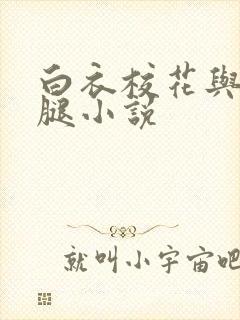 白衣校花與
腿小說
就叫小宇宙吧